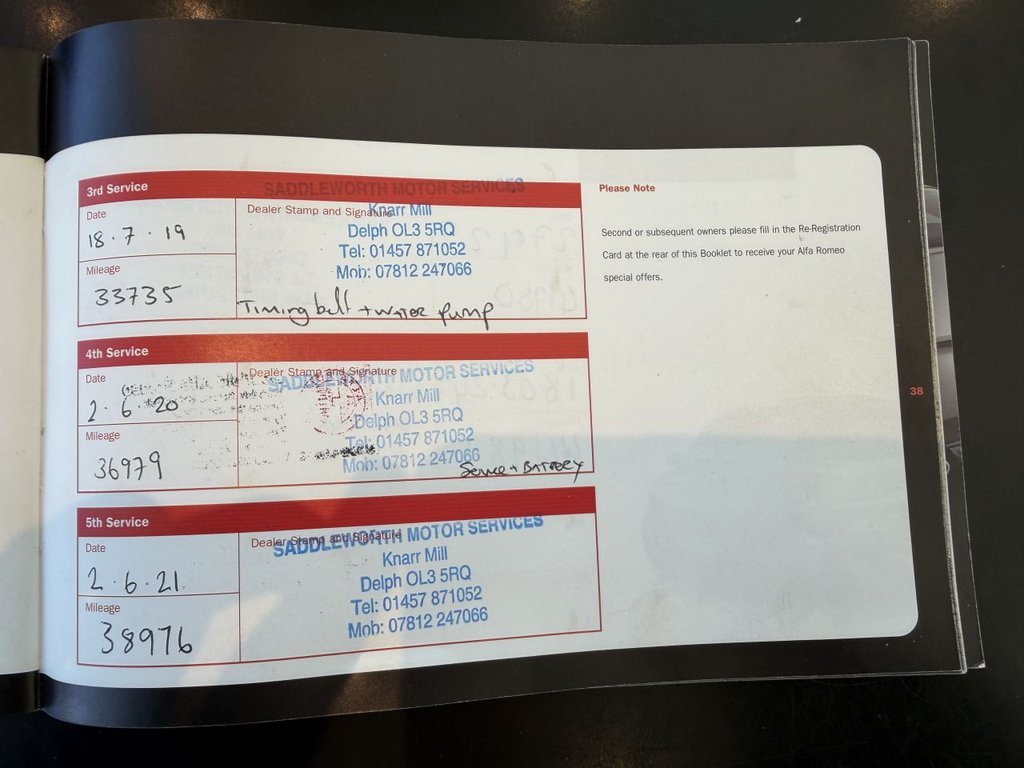 3rd Service
Date
18.7.19
Mileage
33735
Dealer Stamp and Signature
SADDLEWORTH MOTOR SERVICES
Knarr Mill
Delph OL3 5RQ
Tel: 01457 871052
Mob: 07812 247066
Timing belt + WATER Pump
4th Service
Date
2.6.20
Mileage
36979
Dealer Stamp and Signature
SADDLEWORTH MOTOR SERVICES
Knarr Mill
Delph OL3 5RQ
Tel: 01457 871052
Mob: 07812 247066
Service + BATTERY
5th Service
Date
2.6.21
Mileage
38976
Dealer Stamp and Signature
SADDLEWORTH MOTOR SERVICES
Knarr Mill
Delph OL3 5RQ
Tel: 01457 871052
Mob: 07812 247066
Please Note
Second or subsequent owners please fill in the Re-Registration
Card at the rear of this Booklet to receive your Alfa Romeo
special offers.
38